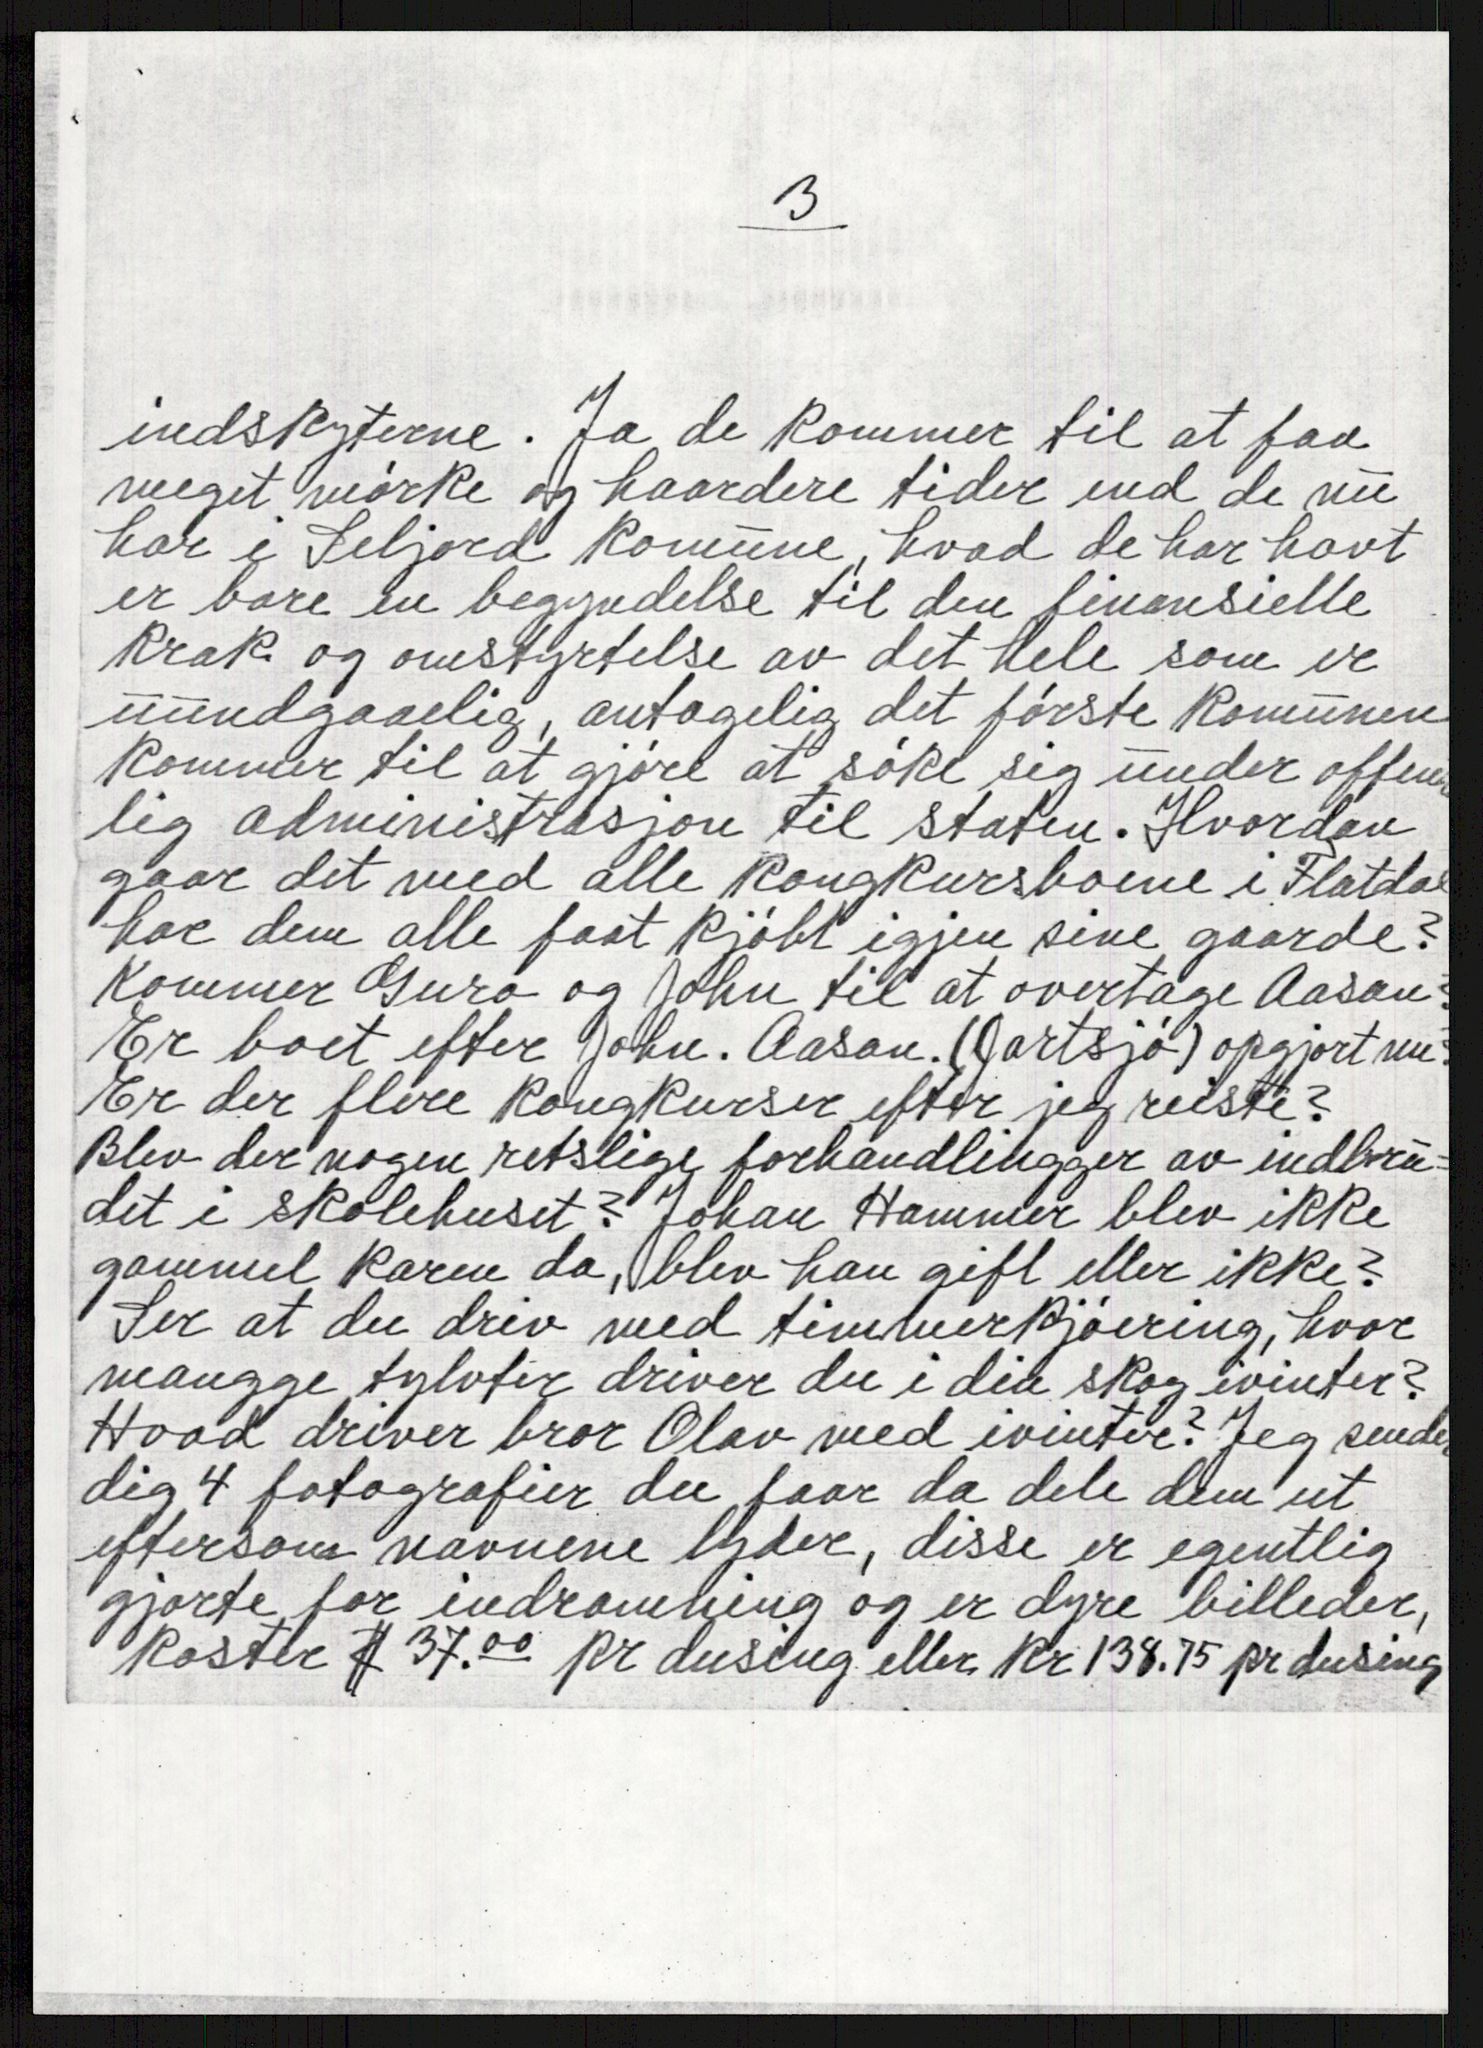 3
indskyterne. Ja de kommer til at faa
meget mörke og haardere tider end de nu
har i Seljord komune, hvad de har havt
er bare en begyndelse til den finansielle
krak og omstyrtelse av det hele som er
uundgaaelig, antagelig det förste komunen
kommer til at gjöre at söke sig under offen
lig administrasjon til staten. Hvordan
gaar det med alle kongkursboene i Flatdal
har dem alle faat kjöbt igjen sine gaarde?
Kommer Guro og John til at overtage Aasan?
Er boet efter John. Aasan. (Gartsjö) opgjort nu?
Er der flere kongkurser efter jeg reiste?
Blev der nogen retslige forhandlingger av indbru=
det i skolehuset? Johan Hammer blev ikke
gammel karen da, blev han gift eller ikke?
Ser at du driv med timmerkjöering, hvor
mangge tylvter driver du i din skog ivinter?
Hvad driver bror Olav med ivinter? Jeg sender
dig 4 fotografier du faar da dele dem ut
eftersom navnene lyder, disse er egentlig
gjorte for indramning og er dyre billeder,
koster $ 37.00 pr dusing eller Kr 138.75 pr dusing